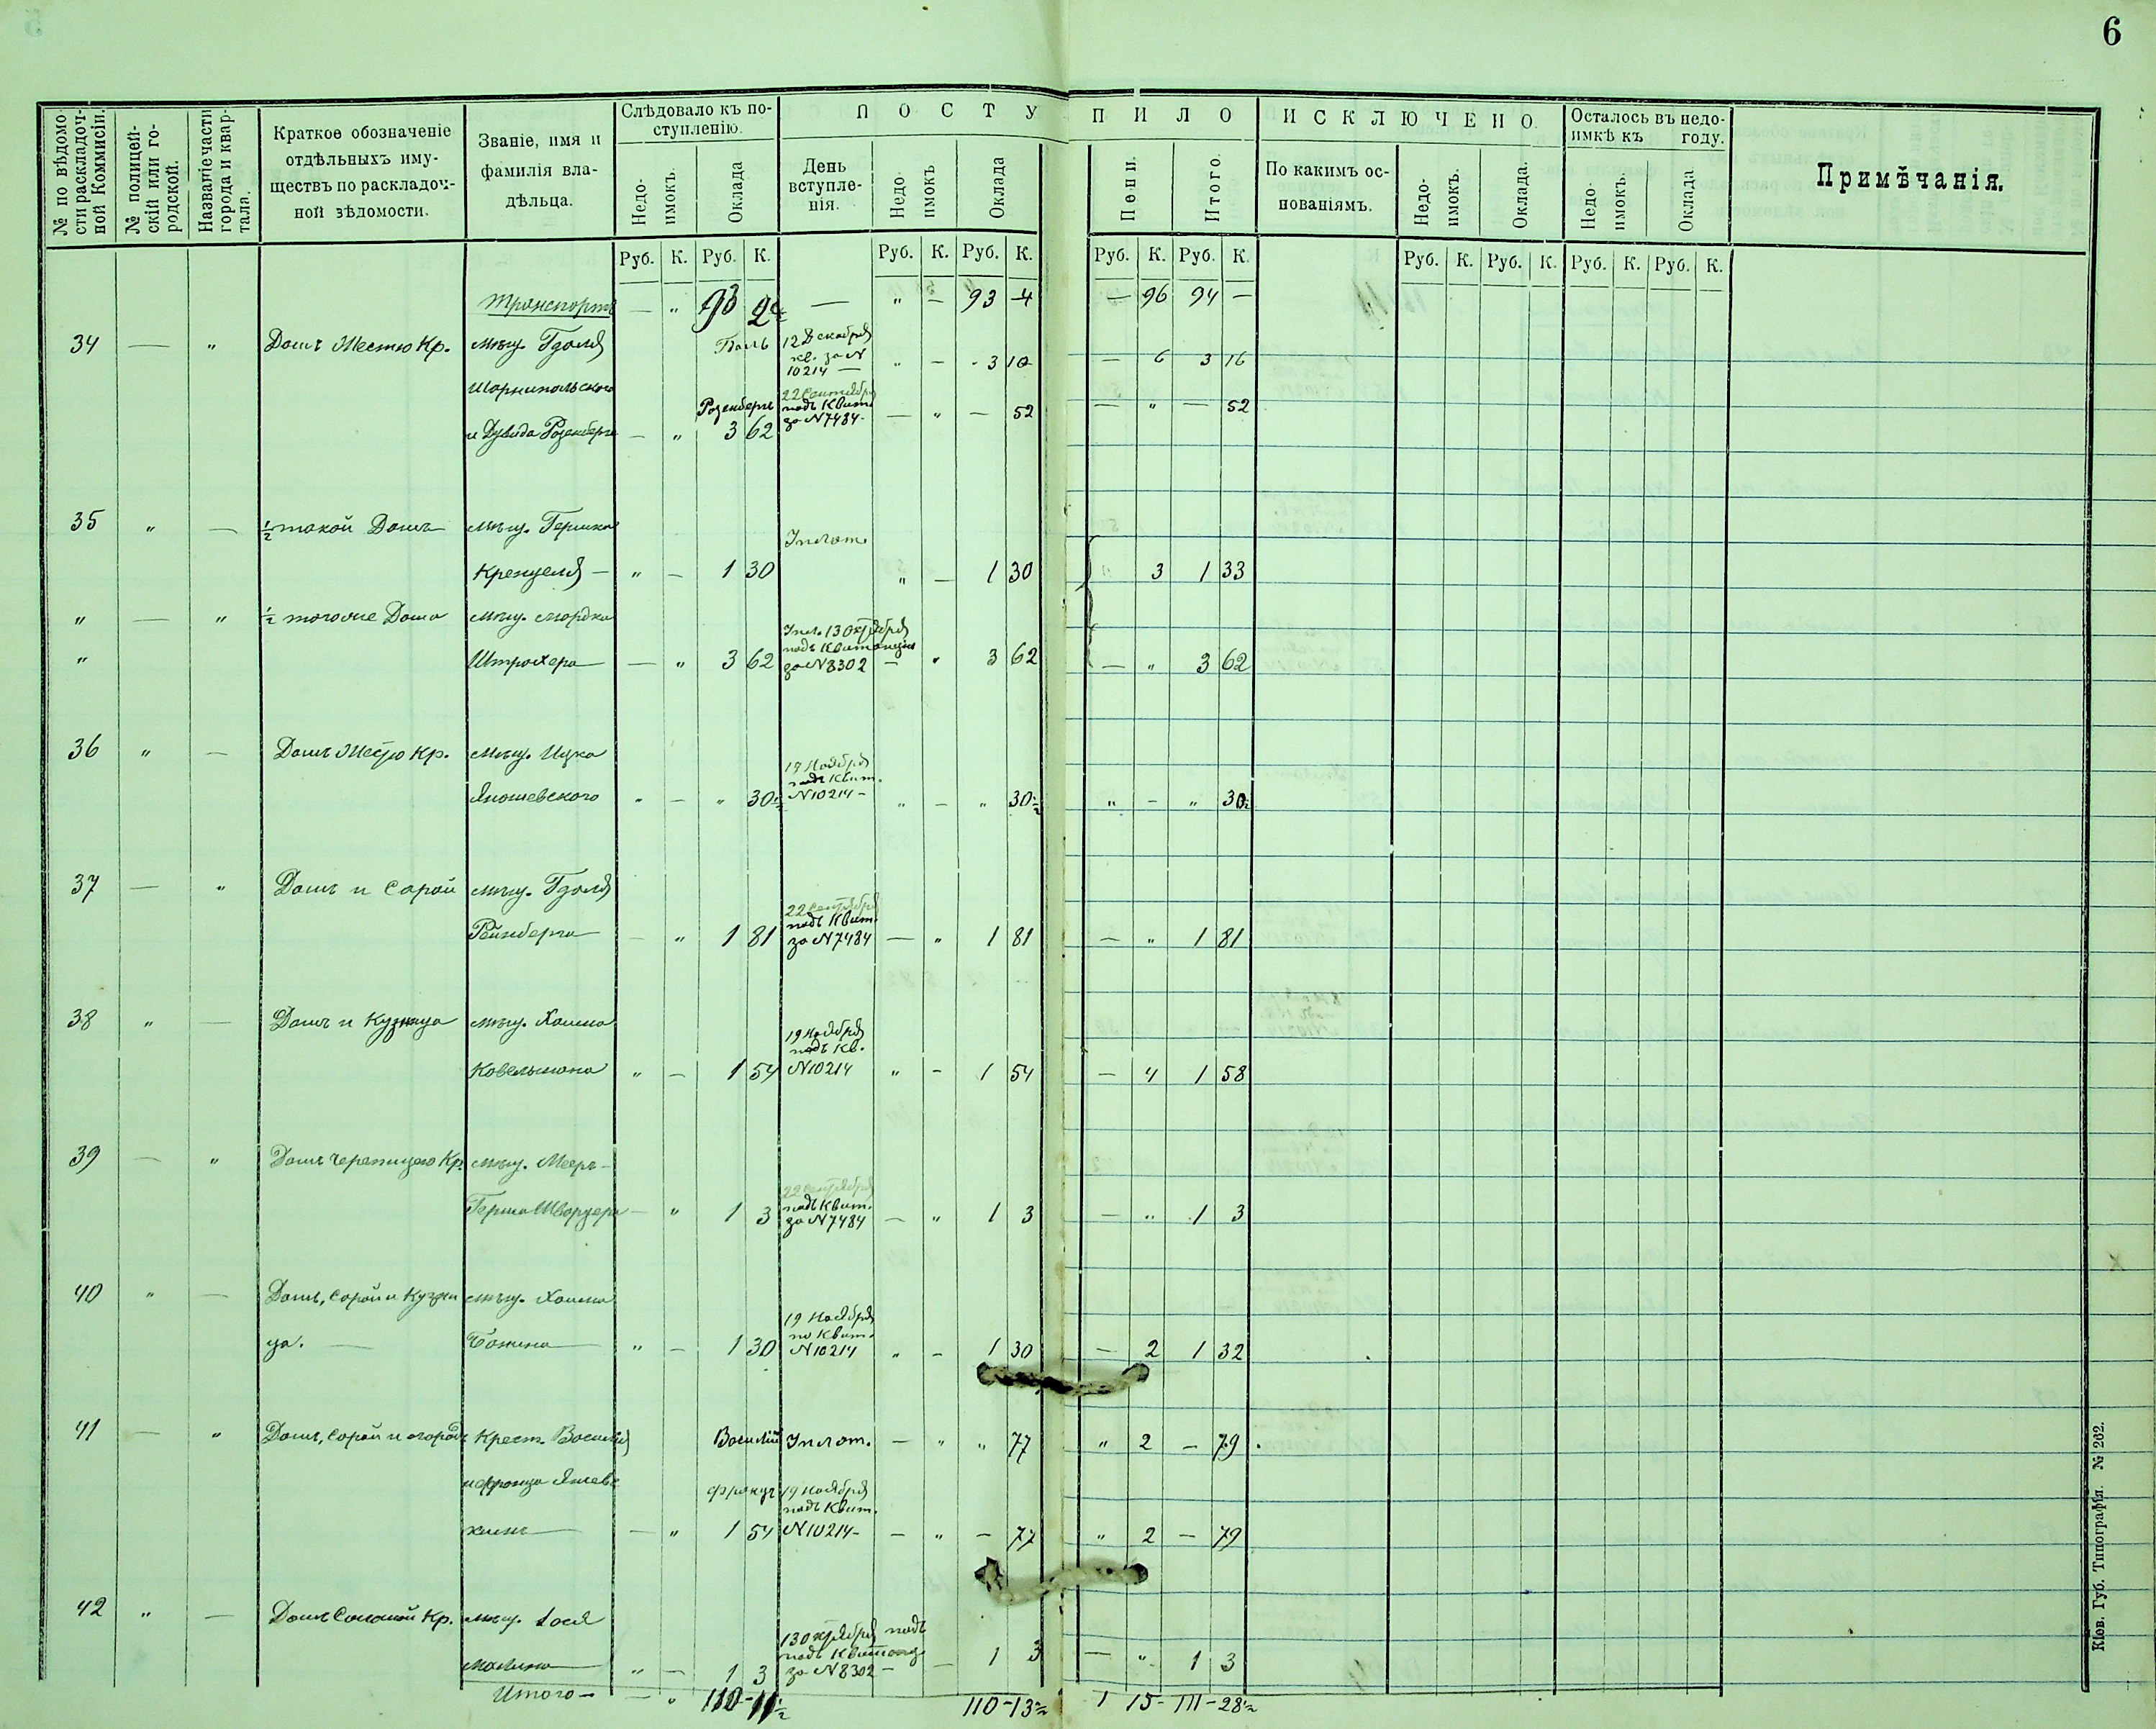 6
№ по вѣдомости раскладочной Коммисіи.
№ полицейскій или городской.
Названіе части города и квартала.
Краткое обозначеніе отдѣльныхъ имуществъ по раскладочной вѣдомости.
Званіе, имя и фамилія владѣльца.
Слѣдовало къ поступленію.
Недоимокъ.
Оклада
П О С Т У П И Л О
День вступленія.
Недоимокъ
Оклада
Пени.
Итого.
И С К Л Ю Ч Е Н О.
По какимъ основаніямъ.
Недоимокъ.
Оклада.
Осталось въ недоимкѣ къ году.
Недоимокъ.
Оклада
Примѣчанія.
Руб. К. Руб. К. Руб. К. Руб. К. Руб. К. Руб. К. Руб. К. Руб. К. Руб. К. Руб. К.
Транспортъ — " 93 — " — 93 4 — 96 94 —
34 — " Домъ Жестью Кр. мѣщ. Гдаля 12 Декабря
кв. за N
10214 — " — 3 10 — 6 3 16
22 Сентября
Розенбергъ подъ Квит.
за N 7484 — " — 52 — " — 52
и Дувида Розенберга — " 3 62
35 " — ½ такой Домъ мѣщ. Гершка
Кренцеля — " — 1 30 " — 1 30 " 3 1 33
" — " ½ тогоже Дома мѣщ. Мордка
13 Октября
подъ Квитанціи
" Штрахера — " 3 62 за N 8302 — " 3 62 — " 3 62
36 " — Домъ Жестью Кр. мѣщ. Ицка
19 Ноября
подъ Квит.
Яношевского " — " 30½ N 10214 — " — " 30½ " — " 30½
37 — " Домъ и Сарай мѣщ. Гдаля
22 Сентября
подъ Квит.
Рейнберга — " 1 81 за N 7484 — " 1 81 — " 1 81
38 " — Домъ и Кузница мѣщ. Хаима
19 Ноября
подъ Кв.
Ковельмана " — 1 54 N 10214 " — 1 54 — 4 1 58
39 — " Домъ Черепицею Кр. мѣщ. Мееръ-
22 Сентября
подъ Квит.
Герша Шварцера — " 1 3 за N 7484 — " 1 3 — " 1 3
40 " — Домъ, Сарай и Кузни мѣщ. Хаима
19 Ноября
по Квит.
ца. " — 1 30 N 10214 " — 1 30 — 2 1 32
41 — " Домъ, Сарай и огородъ Крест. Василій Василій — " " 77 " 2 — 79
и Франца Францъ 19 Ноября
подъ Квит.
— " 1 54 N 10214 — — " — 77 " 2 — 79
42 " — Домъ Соломой Кр. мѣщ.
13 Октября подъ
подъ Квитанц.
" — 1 3 за N 8302 — — 1 3 — " 1 3
Итого — — " 110 - 11½ 110 - 13½ 1 15 - 111 - 28½
Кіов. Губ. Типографія. № 262.